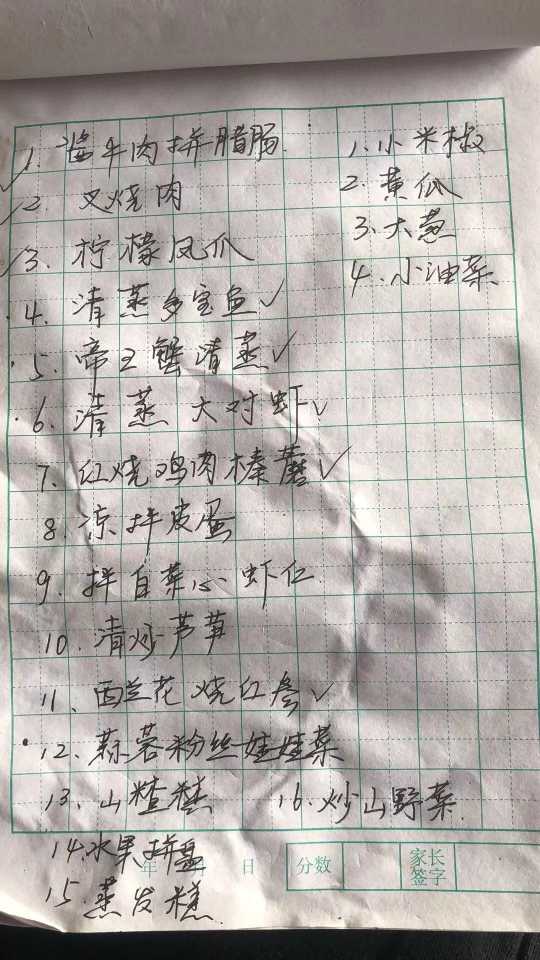 1. 酱牛肉拼腊肠
2. 叉烧肉
3. 柠檬凤爪
4. 清蒸多宝鱼✓
5. 帝王蟹清蒸✓
6. 清蒸大对虾✓
7. 红烧鸡肉榛蘑✓
8. 凉拌皮蛋
9. 拌白菜心虾仁
10. 清炒芦笋
11、西兰花烧红参✓
12、蒜蓉粉丝娃娃菜
13、山楂糕
16. 炒山野菜
14. 水果拼盘
15. 蒸发糕
1. 小米椒
2. 黄瓜
3. 大葱
4. 小油菜
年 日
分数
家长
签字